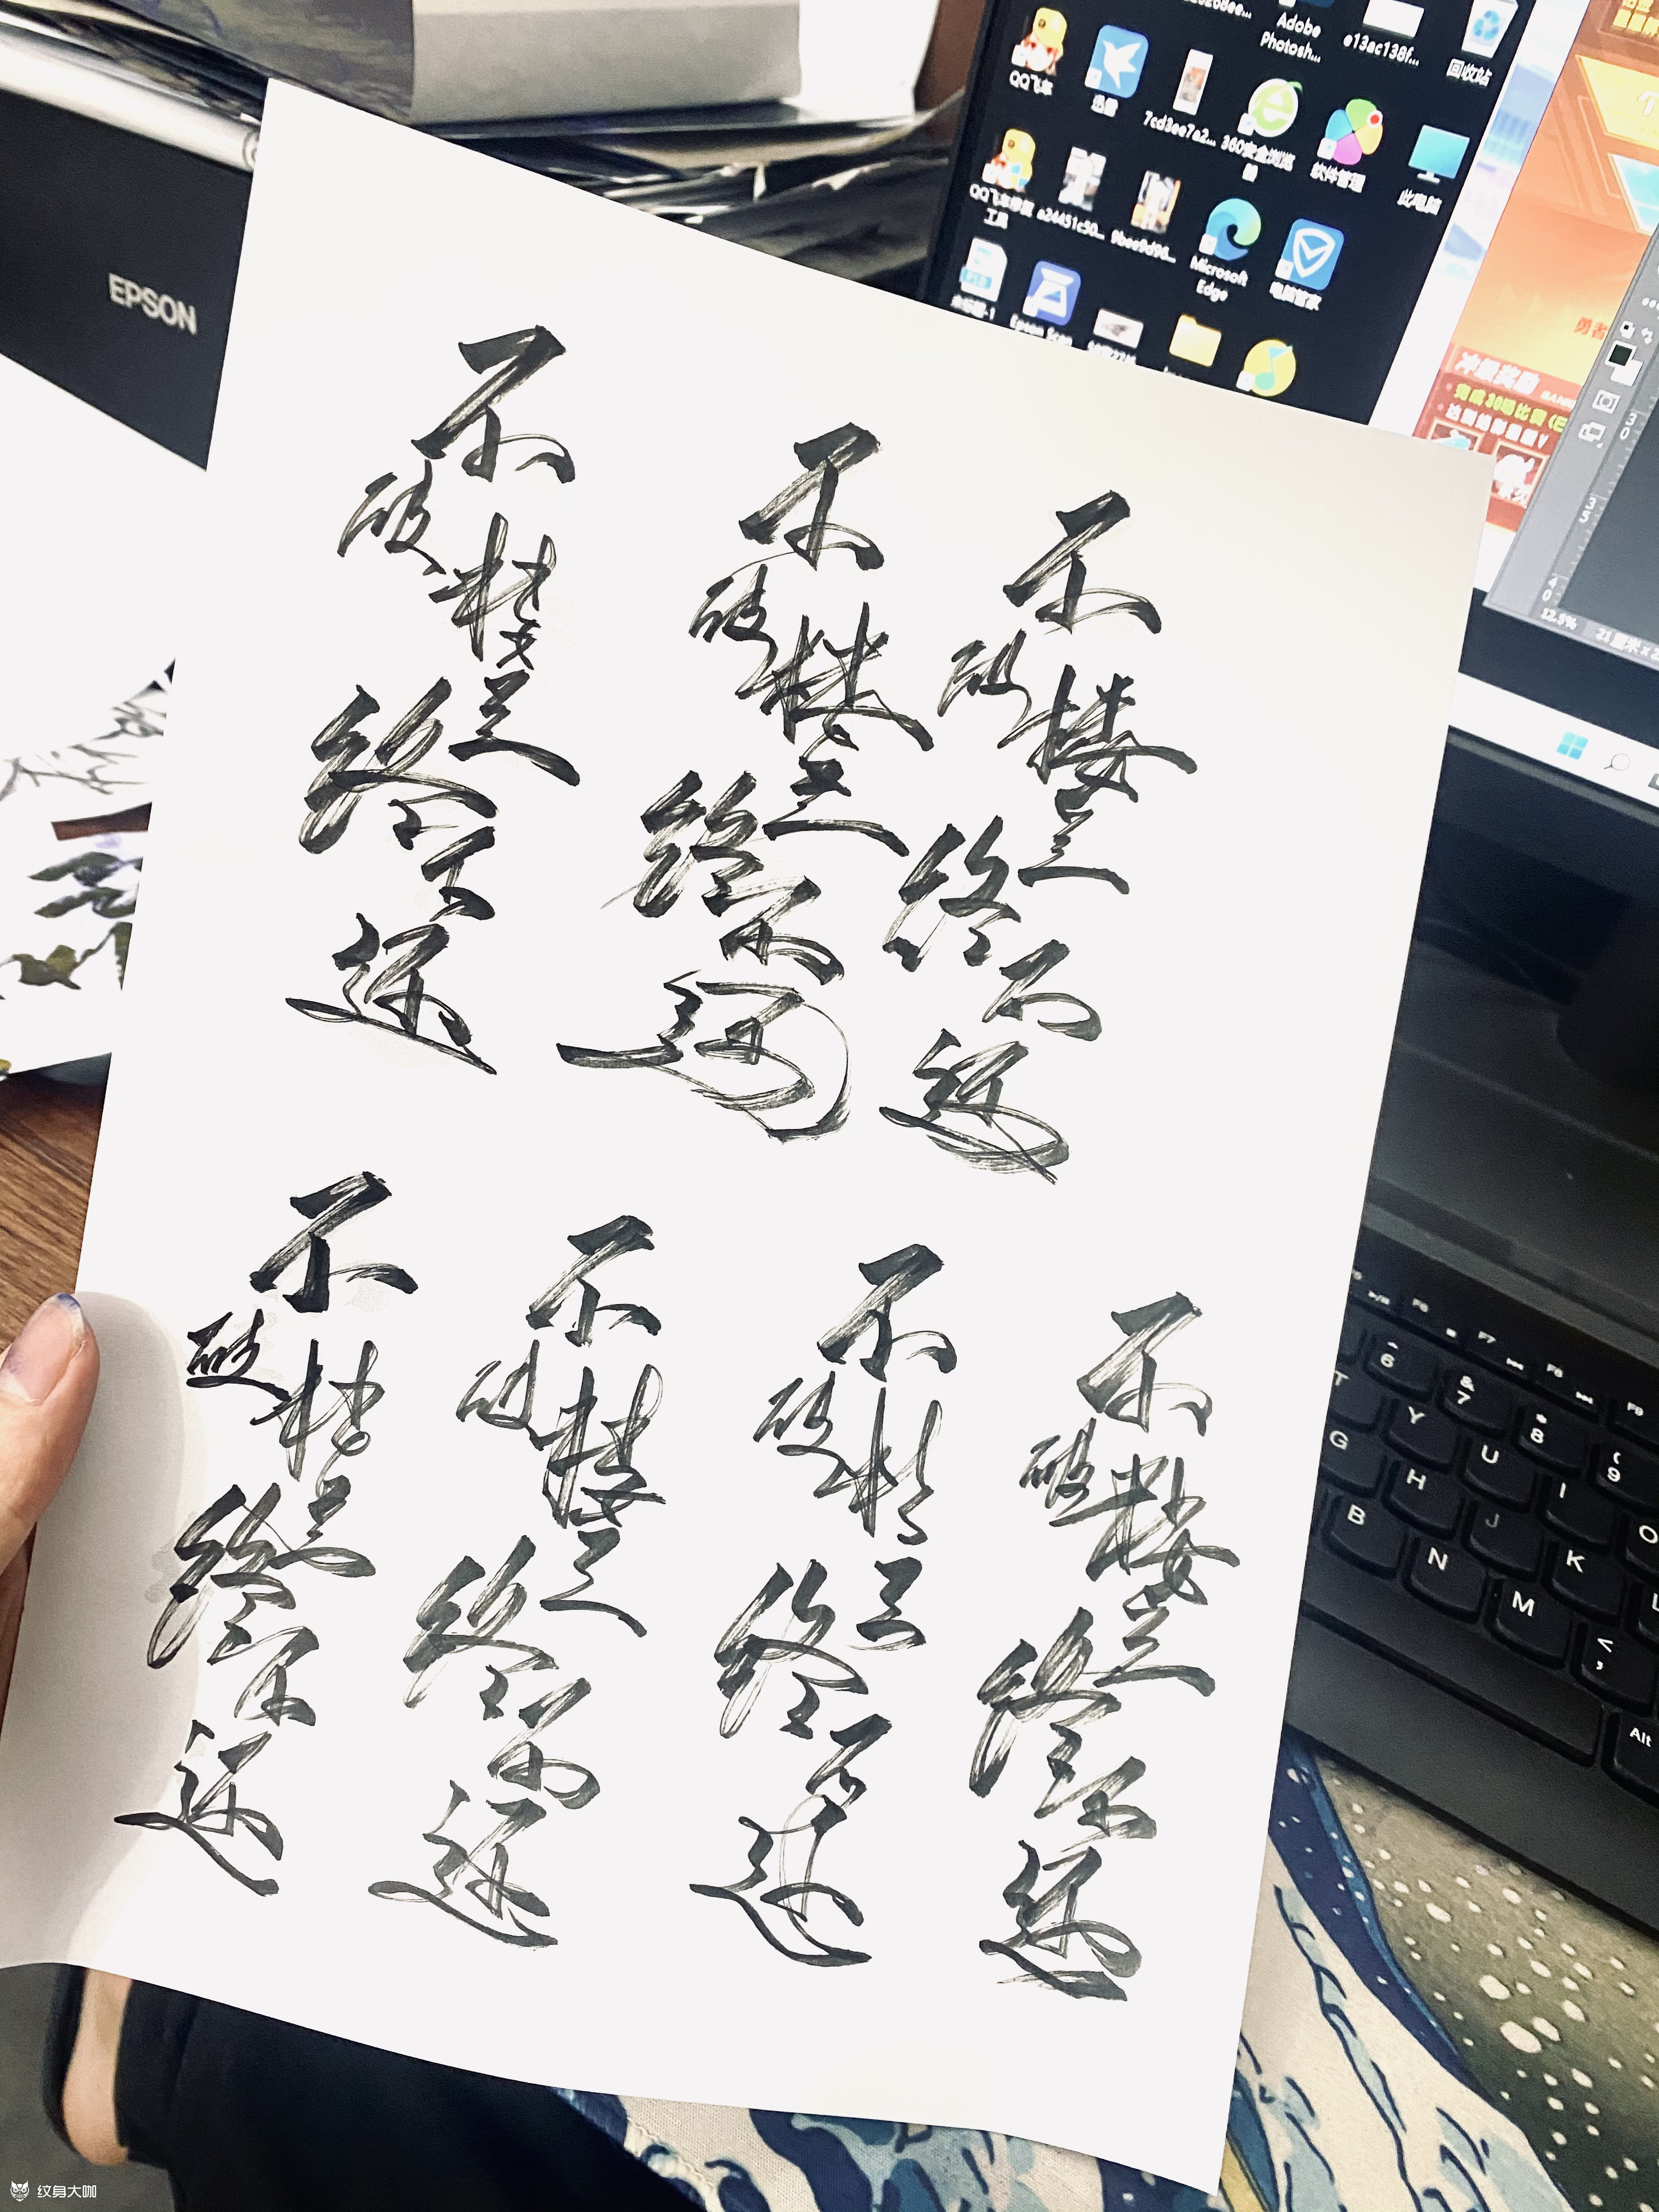 EPSON
Adobe
Photosh...
e13ac138f...
回收站
QQ飞车
迅雷
7cd3ee7a2...
360安全浏览
器
软件管理
此电脑
工具
a24451c50...
9bee9d98...
Microsoft
Edge
电脑管家
Epson Scan
冲级奖励
12.5%
不破楼兰终不还
不破楼兰终不还
不破楼兰终不还
不破楼兰终不还
不破楼兰终不还
不破楼兰终不还
不破楼兰终不还
F6
F7
F8
F9
6
&
7
*
8
(
9
T
Y
U
I
O
G
H
J
K
L
B
N
M
<
,
Alt
纹身大咖